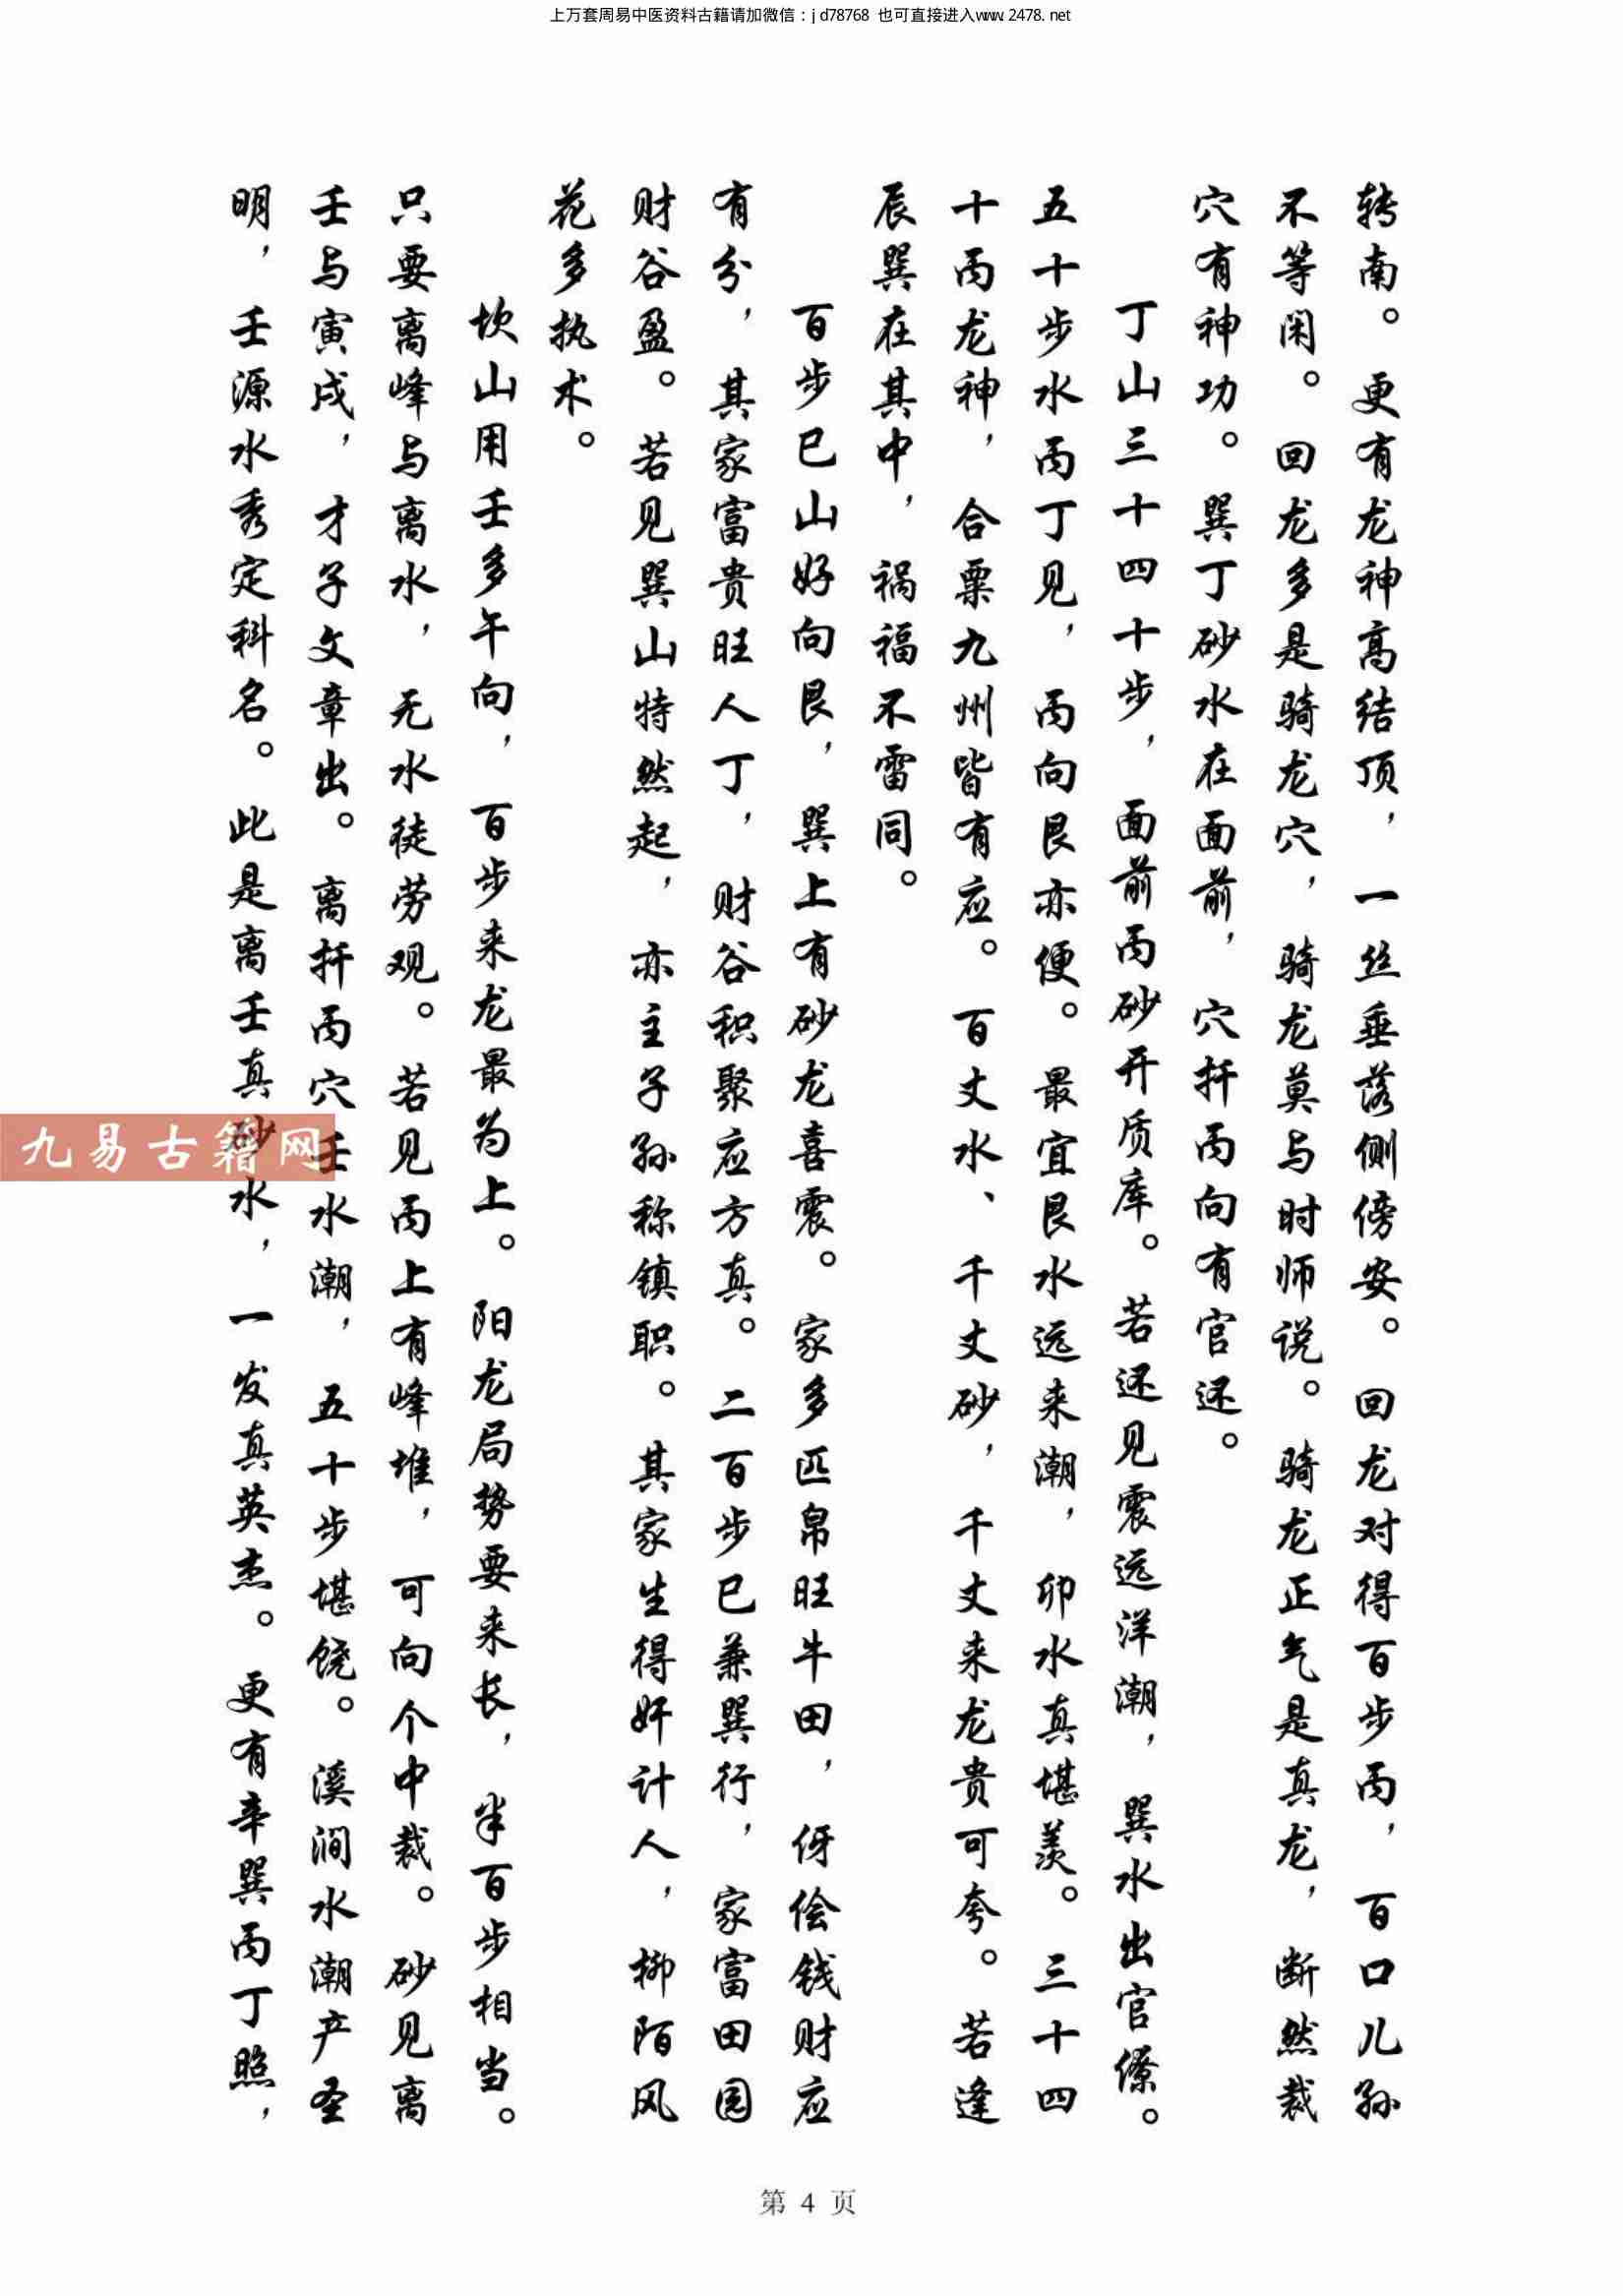 上万套周易中医资料古籍请加微信：jd78768 也可直接进入www.2478.net
转南。更有龙神高结顶，一丝垂落侧傍安。回龙对得百步丙，百口儿孙
不等闲。回龙多是骑龙穴，骑龙莫与时师说。骑龙正气是真龙，断然裁
穴有神功。巽丁砂水在面前，穴扦丙向有官还。
丁山三十四十步，面前丙砂开质库。若还见震远洋潮，巽水出官僚。
五十步水丙丁见，丙向艮亦便。最宜艮水远来潮，卯水真堪羡。三十四
十丙龙神，合粟九州皆有应。百丈水、千丈砂，千丈来龙贵可夸。若逢
辰巽在其中，祸福不雷同。
百步巳山好向艮，巽上有砂龙喜震。家多匹帛旺牛田，伢侩钱财应
有分，其家富贵旺人丁，财谷积聚应方真。二百步巳兼巽行，家富田园
财谷盈。若见巽山特然起，亦主子孙称镇职。其家生得奸计人，柳陌风
花多执术。
坎山用壬多午向，百步来龙最为上。阳龙局势要来长，半百步相当。
只要离峰与离水，无水徒劳观。若见丙上有峰堆，可向个中裁。砂见离
壬与寅戌，才子文章出。离扦丙穴壬水潮，五十步堪饶。溪涧水潮产圣
明，壬源水秀定科名。此是离壬真砂水，一发真英杰。更有辛巽丙丁照，
九易古籍网
第 4 页